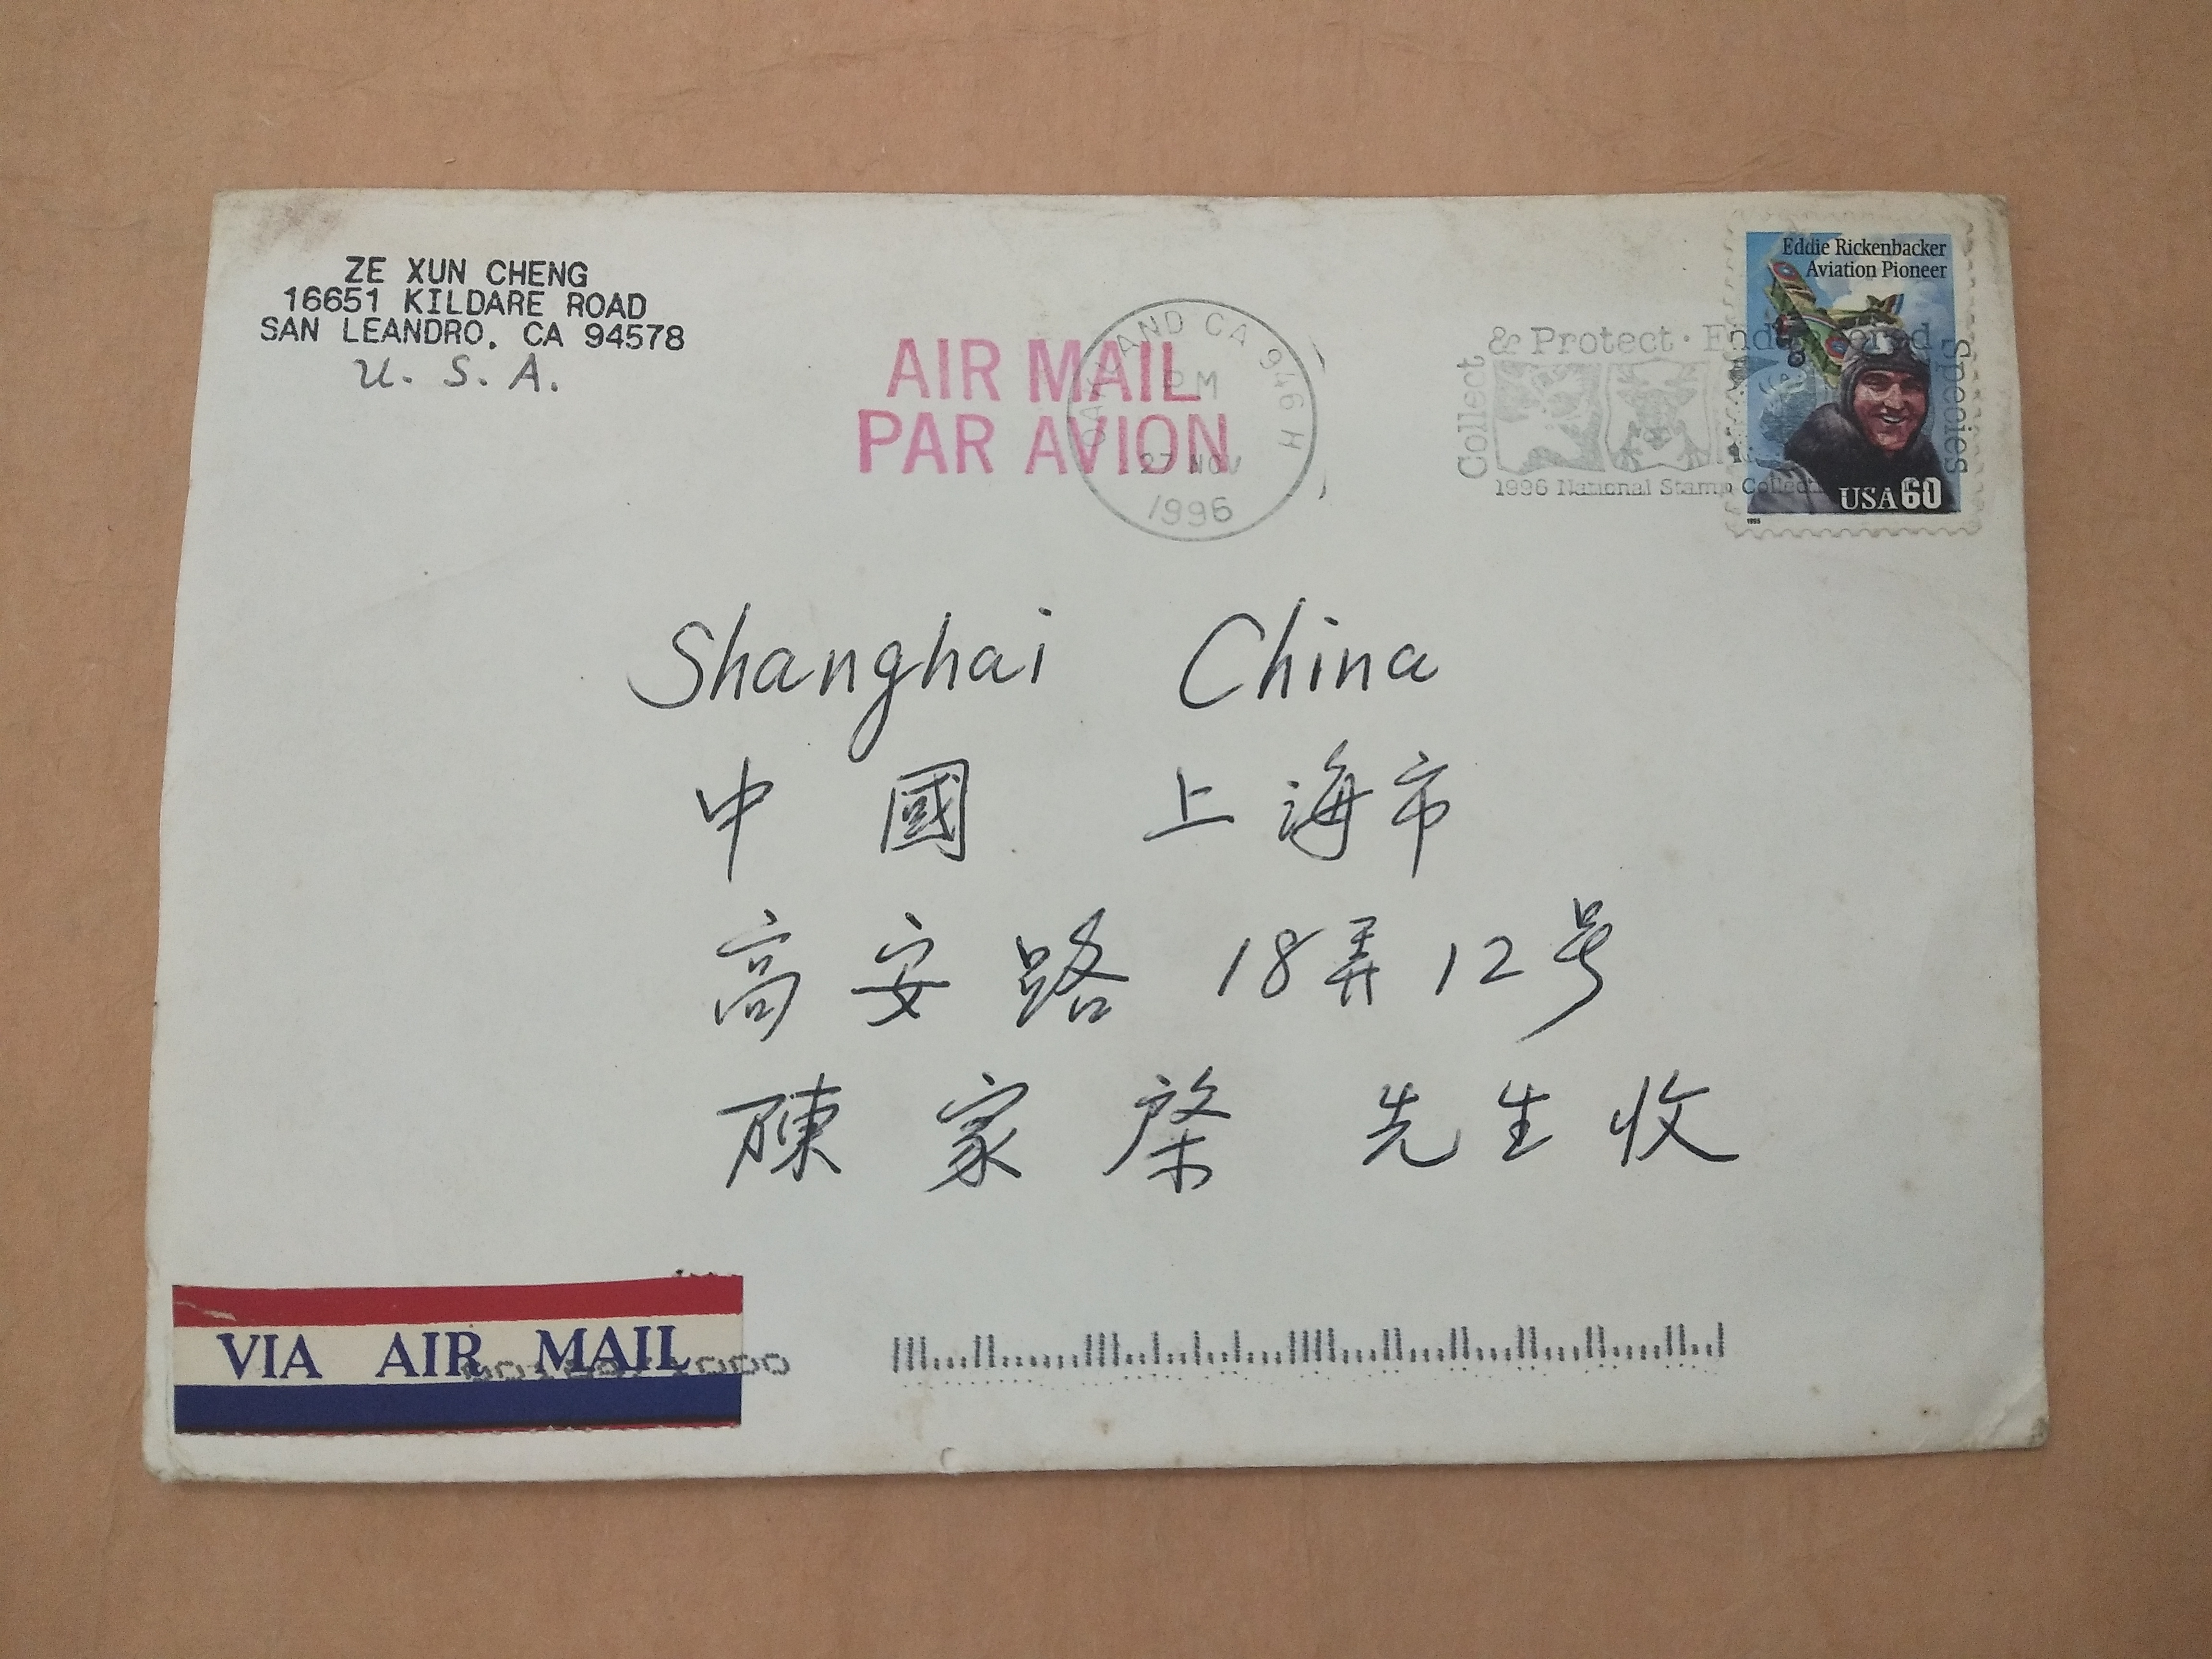 ZE XUN CHENG
16651 KILDARE ROAD
SAN LEANDRO, CA 94578
U. S. A.
AIR MAIL
PAR AVION
OAKLAND CA 946 H
PM
27 NOV
1996
Collect & Protect · Endangered Species
1996 National Stamp Collec
Eddie Rickenbacker
Aviation Pioneer
USA 60
1995
Shanghai China
中國 上海市
高安路 18弄12号
陳家棨 先生收
VIA AIR MAIL